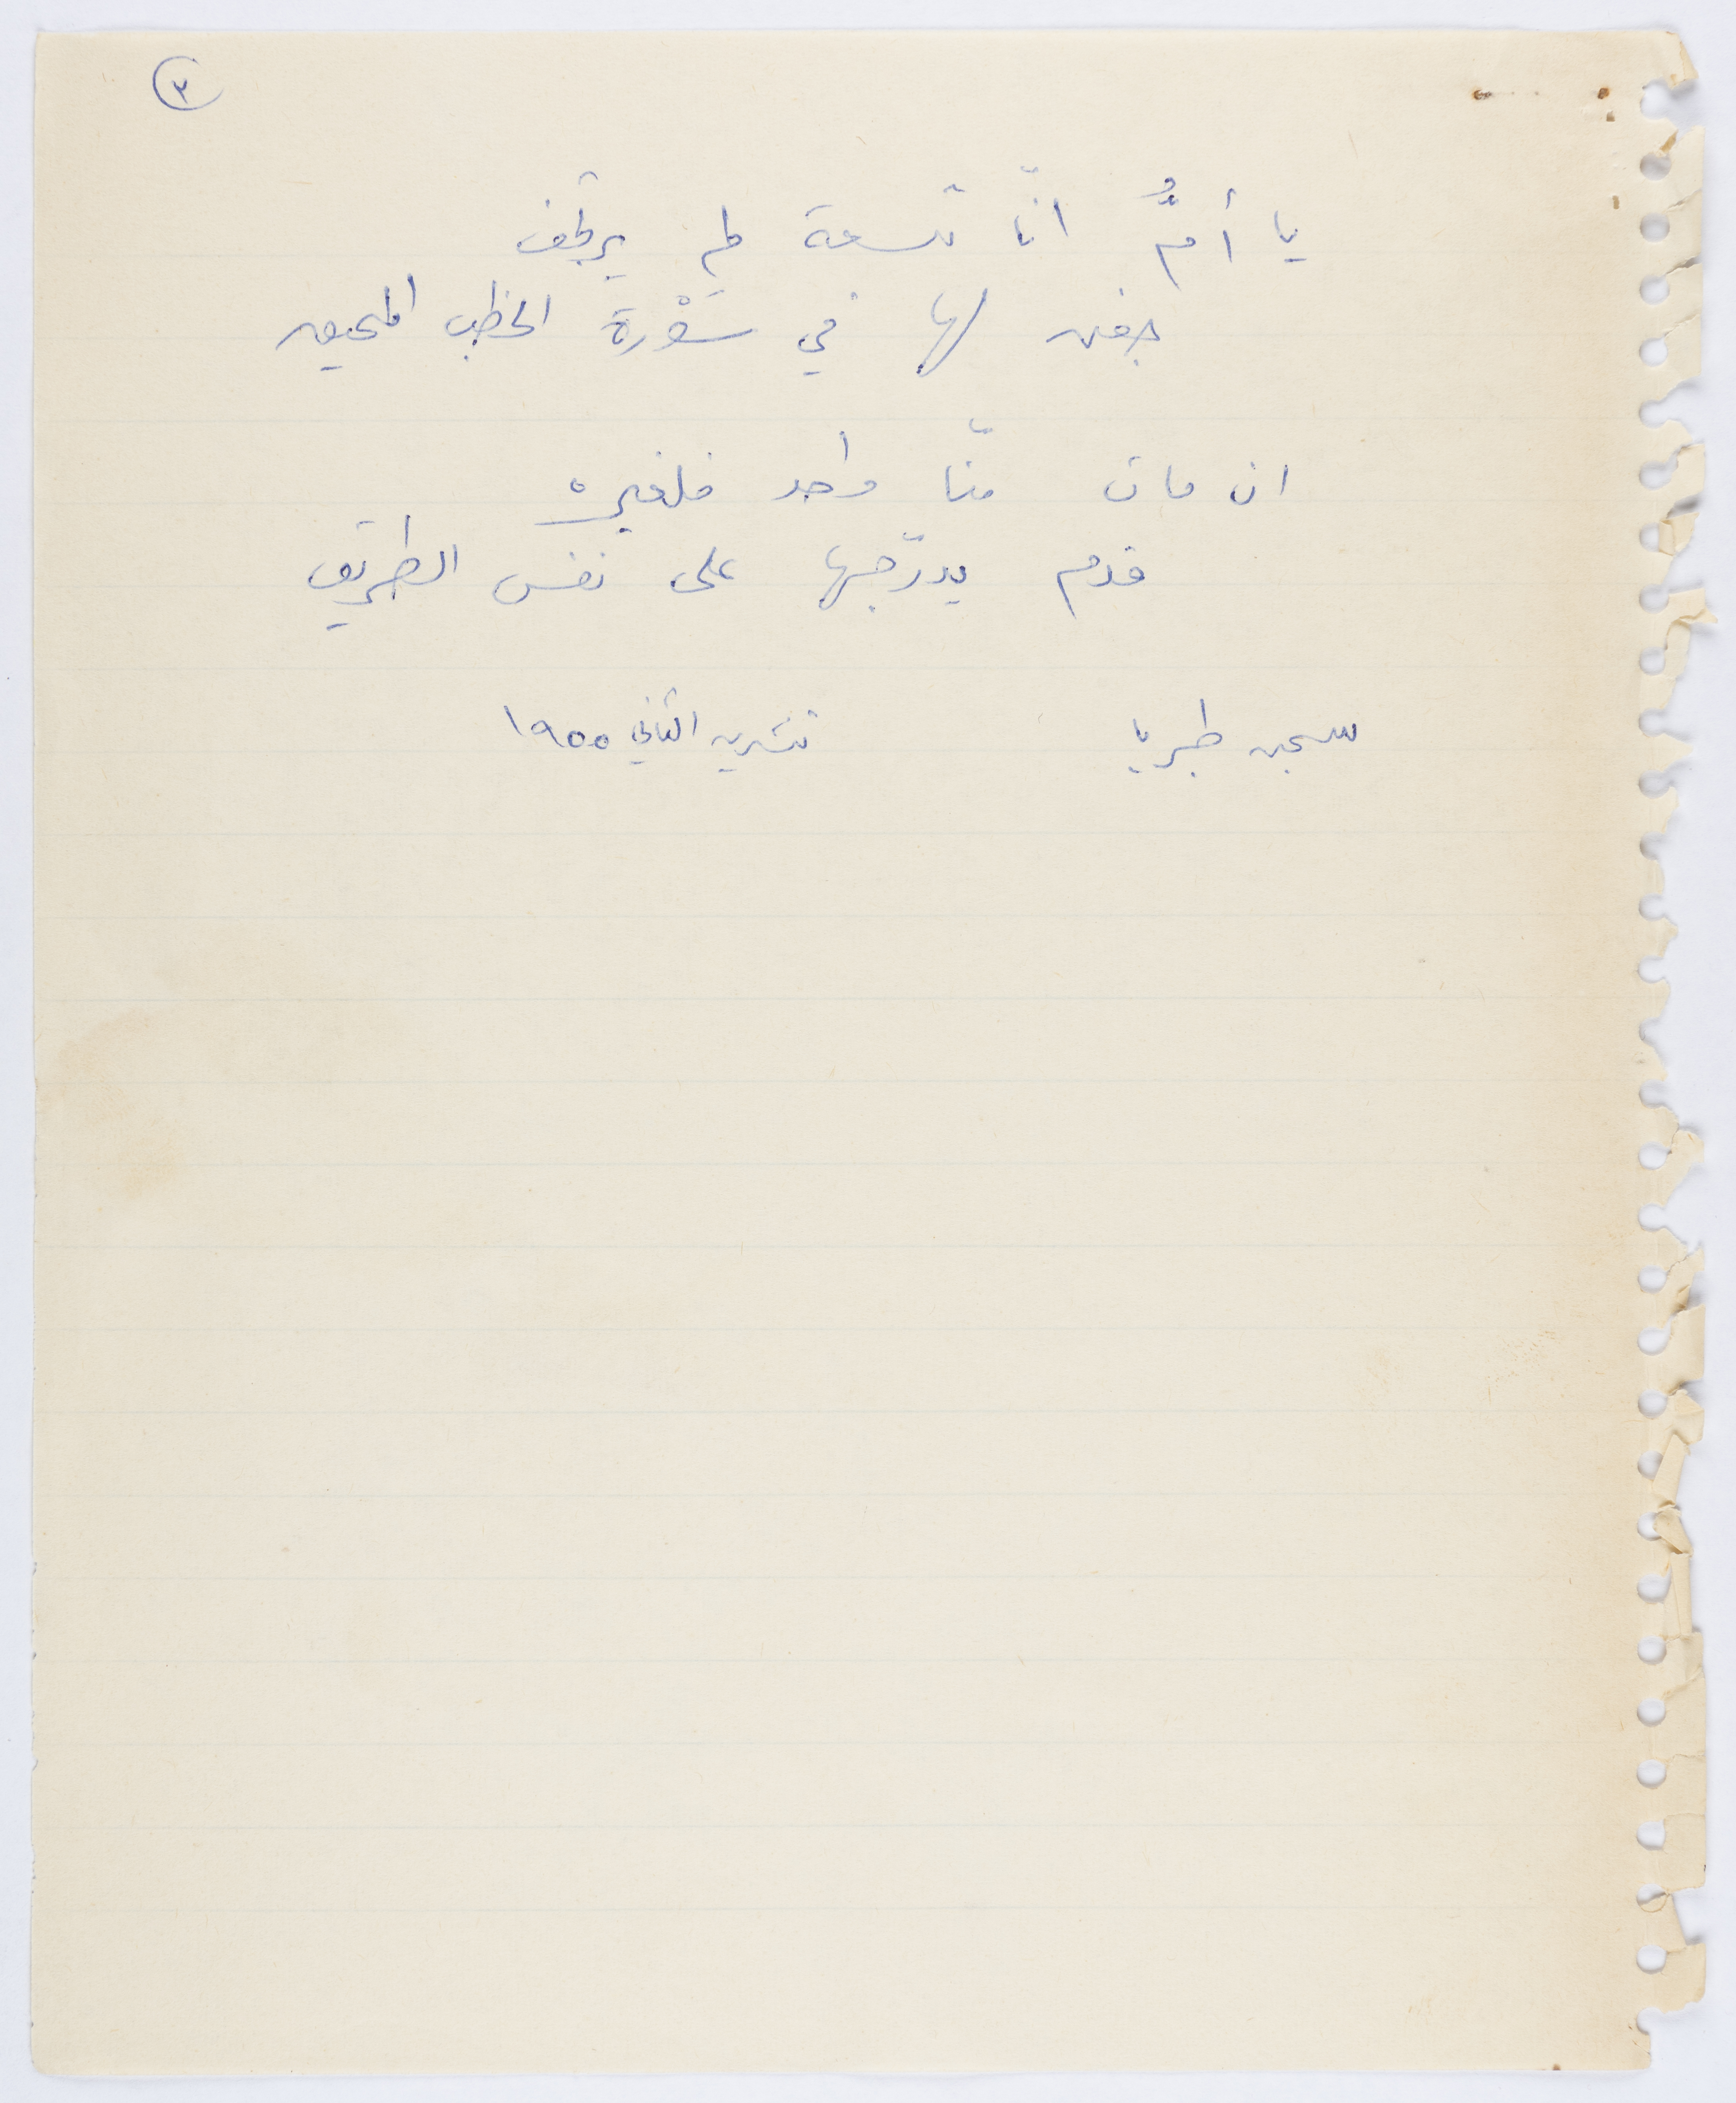 ٣
يا أمُّ انّا تسعة لم يرتجف
جفن لها في سَوْرة الخطب المحيق
ان مات منّا واحد فلغيره
قدم يدرّجها على نفس الطريق
سجن طبريا تشرين الثاني ١٩٥٥